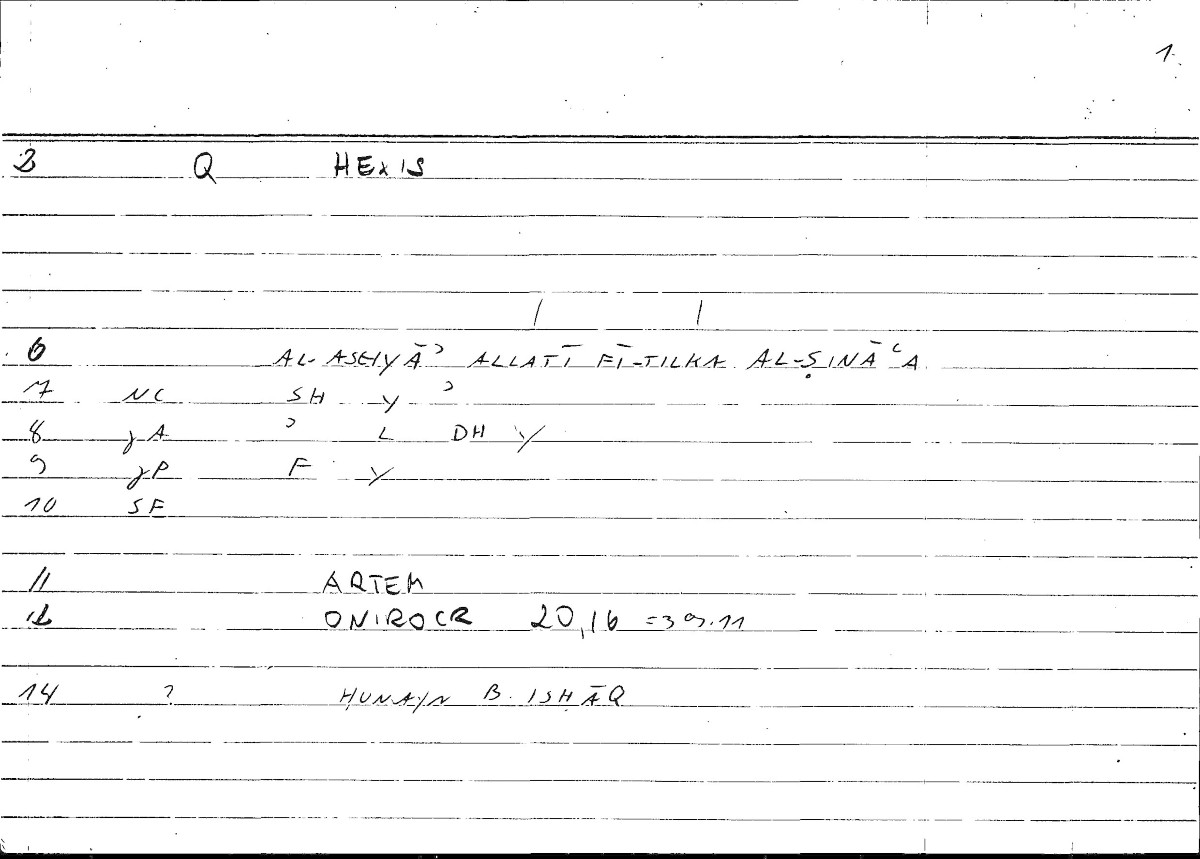 1
3 Q HEXIS
6 AL-ASHYĀʾ ALLATĪ FĪ-TILKA AL-ṢINĀʿA
7 NC SH Y ʾ
8 γA ʾ L DH Y
9 γP F Y
10 SF
11 ARTEM
12 ONIROCR 20,16 =39.11
14 ? ḤUNAYN B. ISḤĀQ